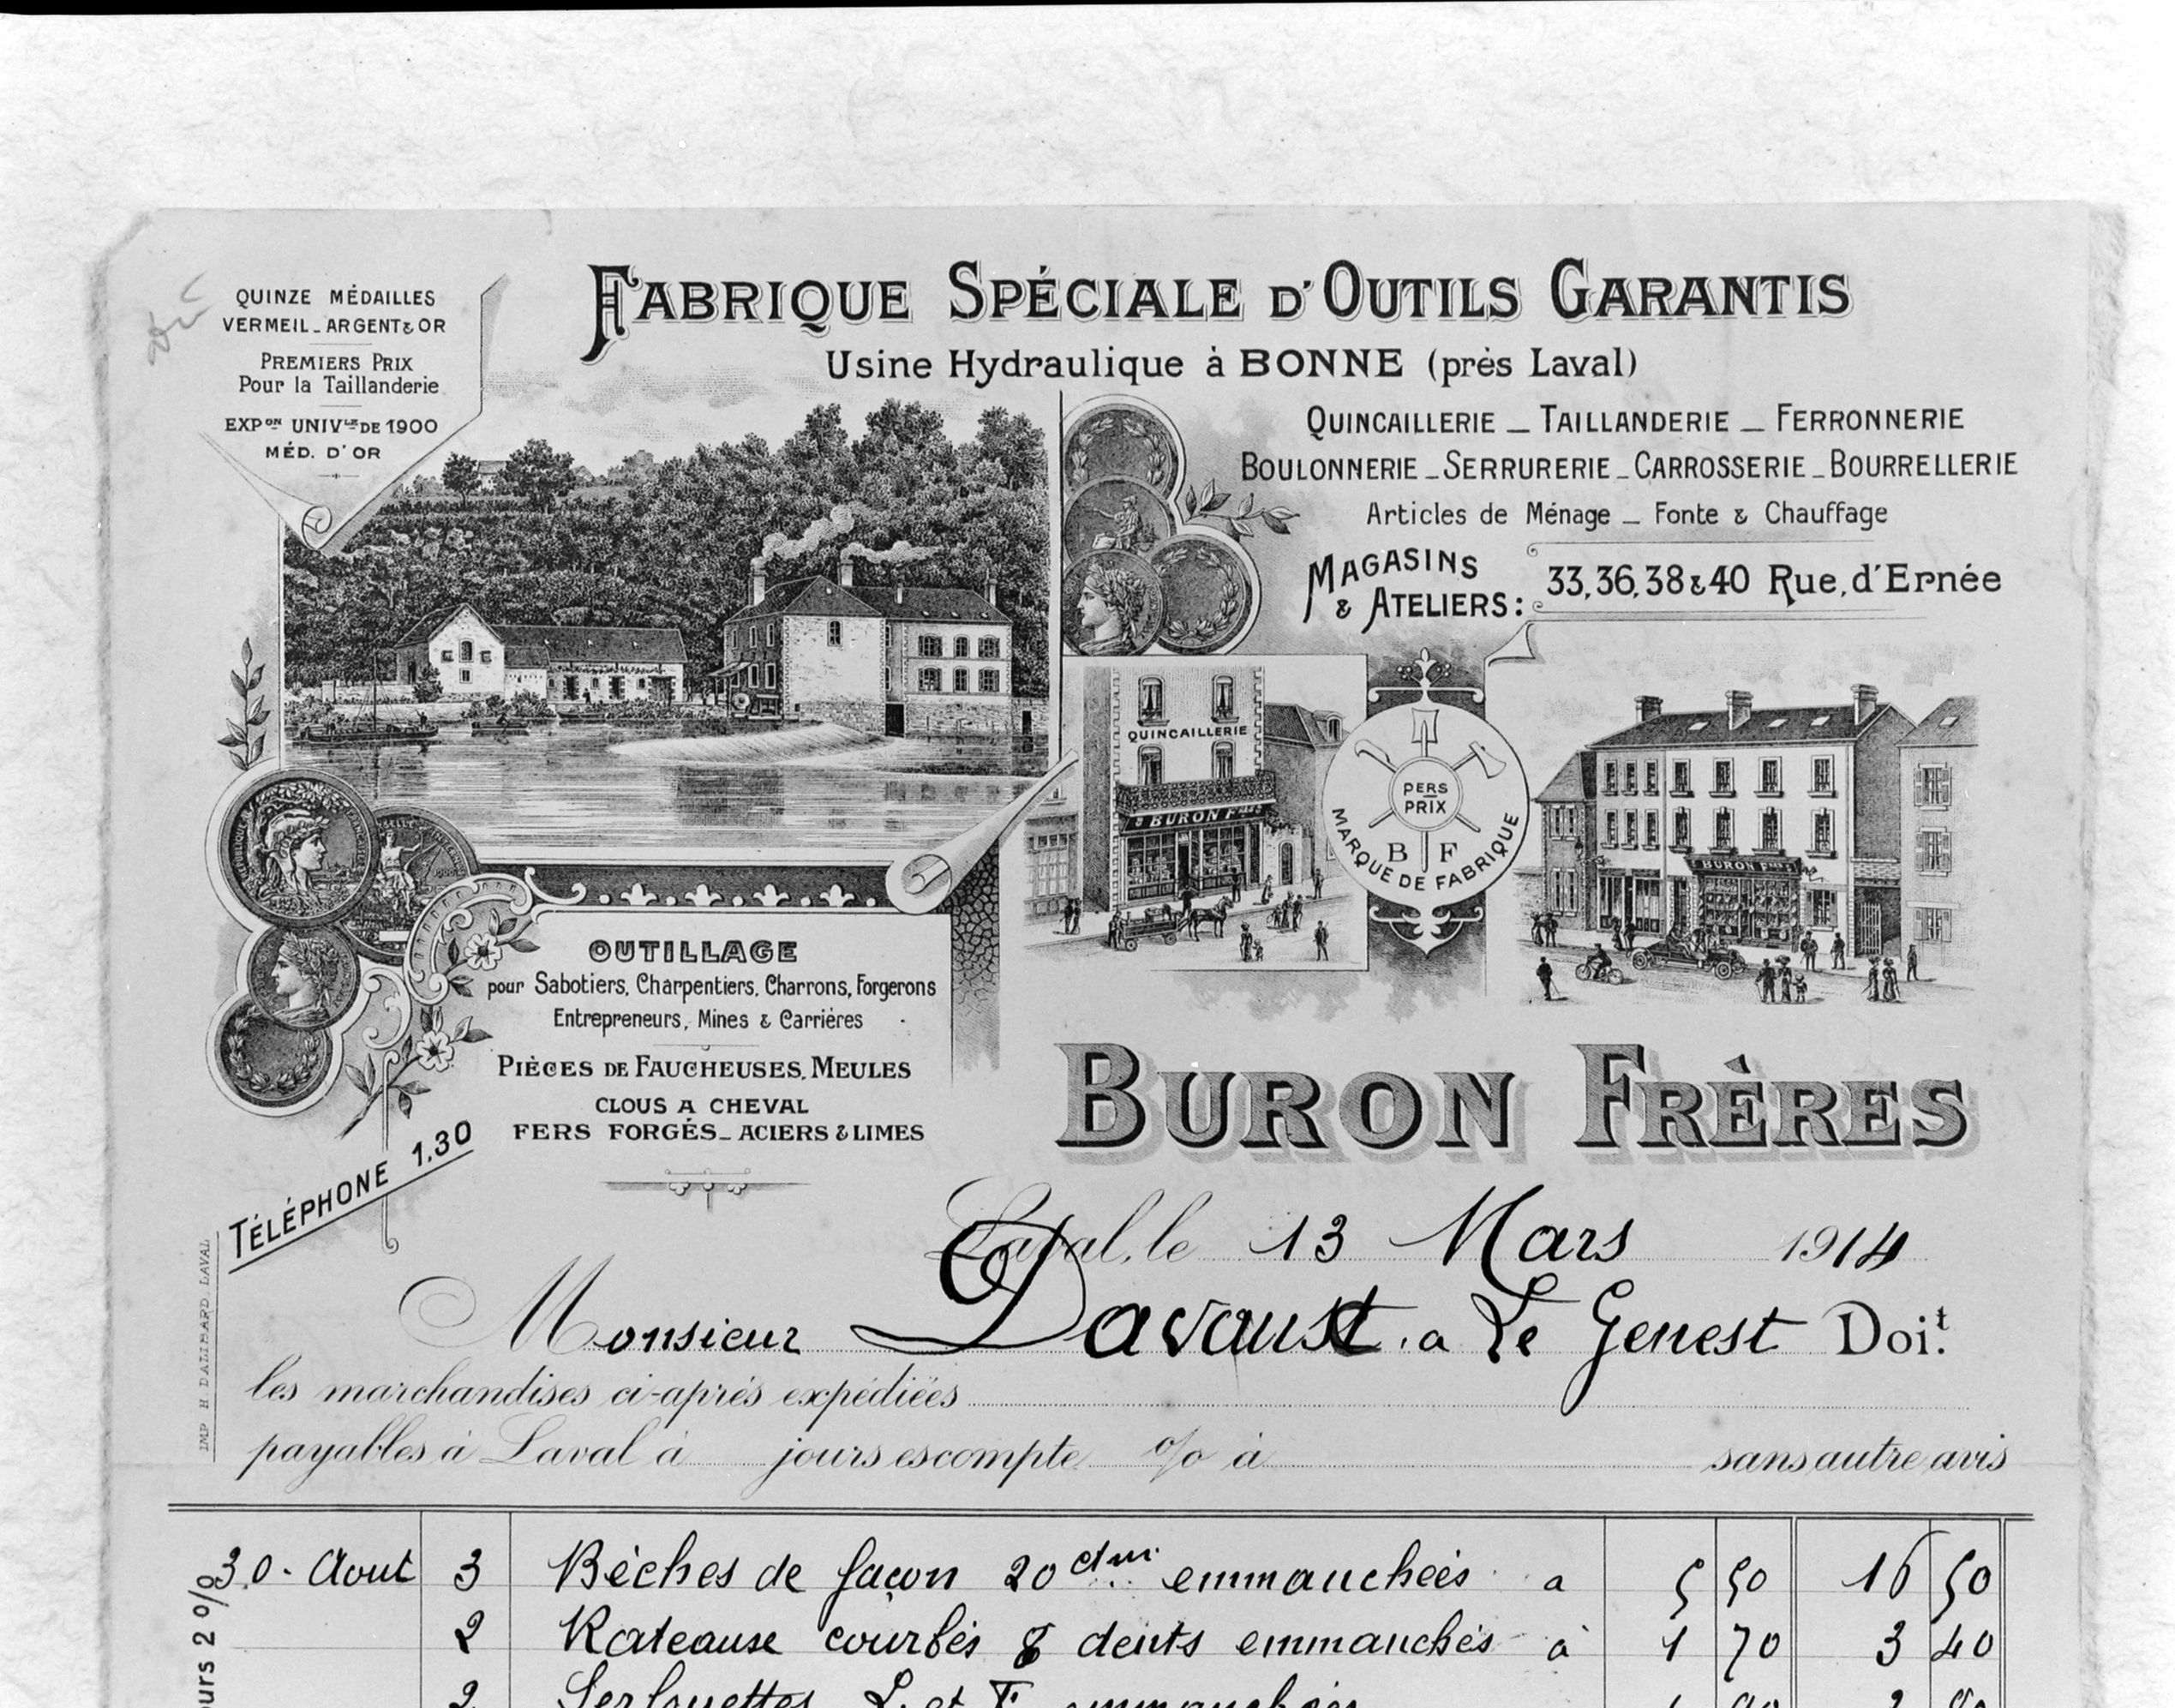 QUINZE MÉDAILLES
VERMEIL_ARGENT & OR
PREMIERS PRIX
Pour la Taillanderie
EXP^ON UNIV^LE DE 1900
MÉD. D'OR
FABRIQUE SPÉCIALE D'OUTILS GARANTIS
Usine Hydraulique à BONNE (près Laval)
QUINCAILLERIE _ TAILLANDERIE _ FERRONNERIE
BOULONNERIE _ SERRURERIE _ CARROSSERIE _ BOURRELLERIE
Articles de Ménage _ Fonte & Chauffage
MAGASINS
& ATELIERS:
33, 36, 38 & 40 Rue, d'Ernée
QUINCAILLERIE
BURON F
PERS
PRIX
B F
MARQUE DE FABRIQUE
BURON F
OUTILLAGE
pour Sabotiers, Charpentiers, Charrons, Forgerons
Entrepreneurs, Mines & Carrières
PIÈCES DE FAUCHEUSES, MEULES
CLOUS A CHEVAL
FERS FORGÉS _ ACIERS & LIMES
BURON FRÈRES
TÉLÉPHONE 1.30
IMP H DALIBARD LAVAL
Laval, le 13 Mars 1914
Monsieur Davaust a Le Genest Doi.t
les marchandises ci-après expédiées
payables à Laval à jours escompte % à sans autre avis
30. Aout 3 Bèches de façon 20 emmanchées a 5 50 16 50
2 Rateause courbés 8 dents emmanchés à 1 70 3 40
2 L. et F.
ours 2 %